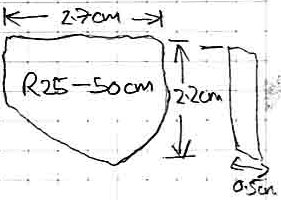 2.7cm
R25-50cm
2.2cm
0.5cm